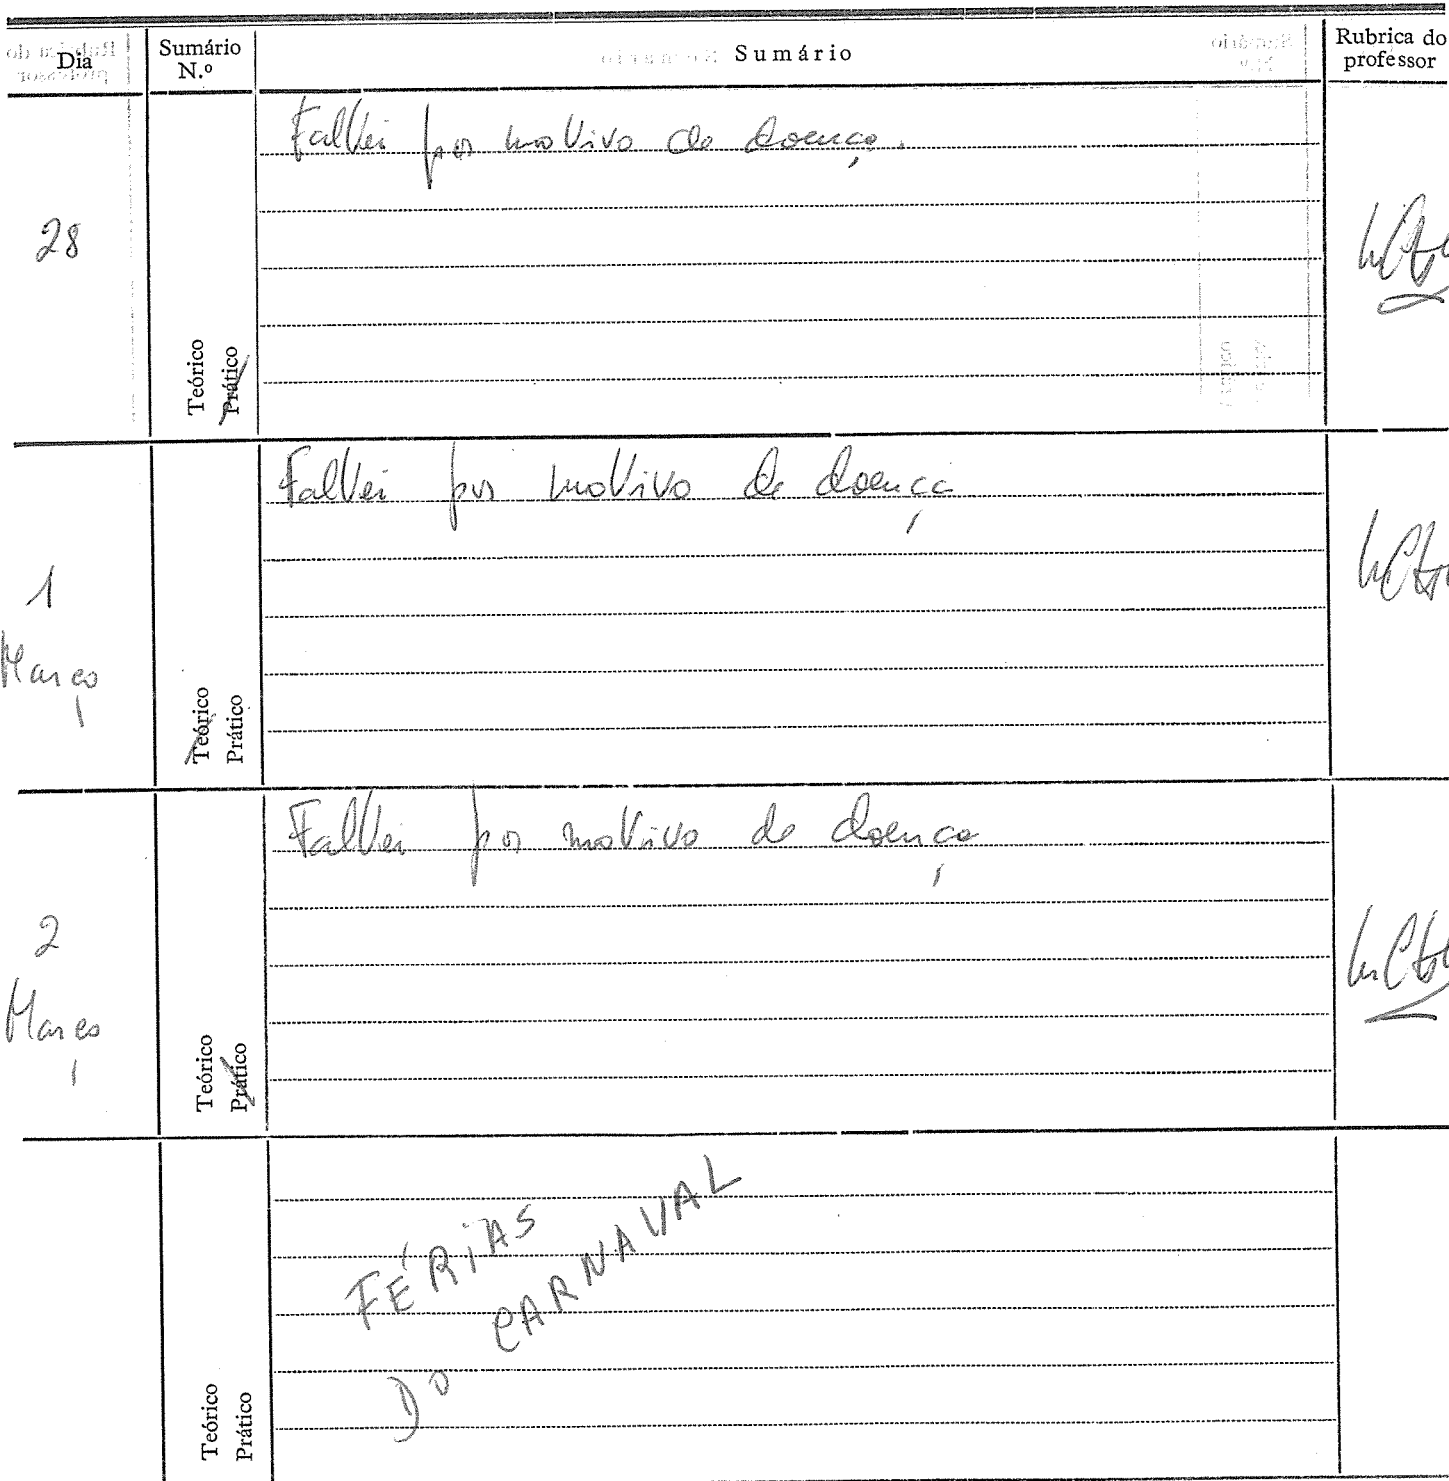 Dia
Sumário
N.º
Sumário
Rubrica do
professor
28
Teórico
Prático
Faltei por motivo de doença.
1
Março
Teórico
Prático
Faltei por motivo de doença
2
Março
Teórico
Prático
Faltei por motivo de doença
Teórico
Prático
FÉRIAS
DO CARNAVAL